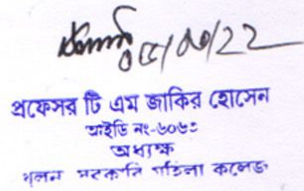 ০৫/০৬/22
প্রফেসর টি এম জাকির হোসেন
আইডি নং-৬০৬৩
অধ্যক্ষ
সরকারি মহিলা কলেজ